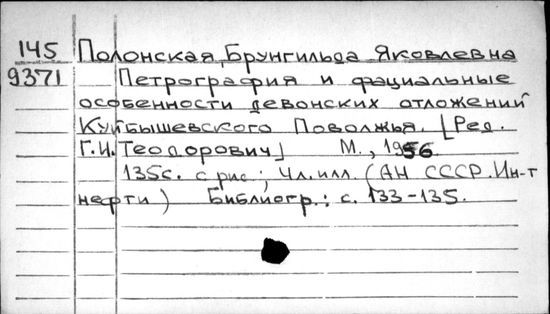 145 Полонская, Брунгильда Яковлевна
9371 Петрография и фациальные
особенности девонских отложений
Куйбышевского Поволжья. [Ред.
Г.И. Теодорович] М., 1956.
135с. с рис.; 4л.илл. (АН СССР. Ин-т
нефти) Библиогр.: с. 133-135.